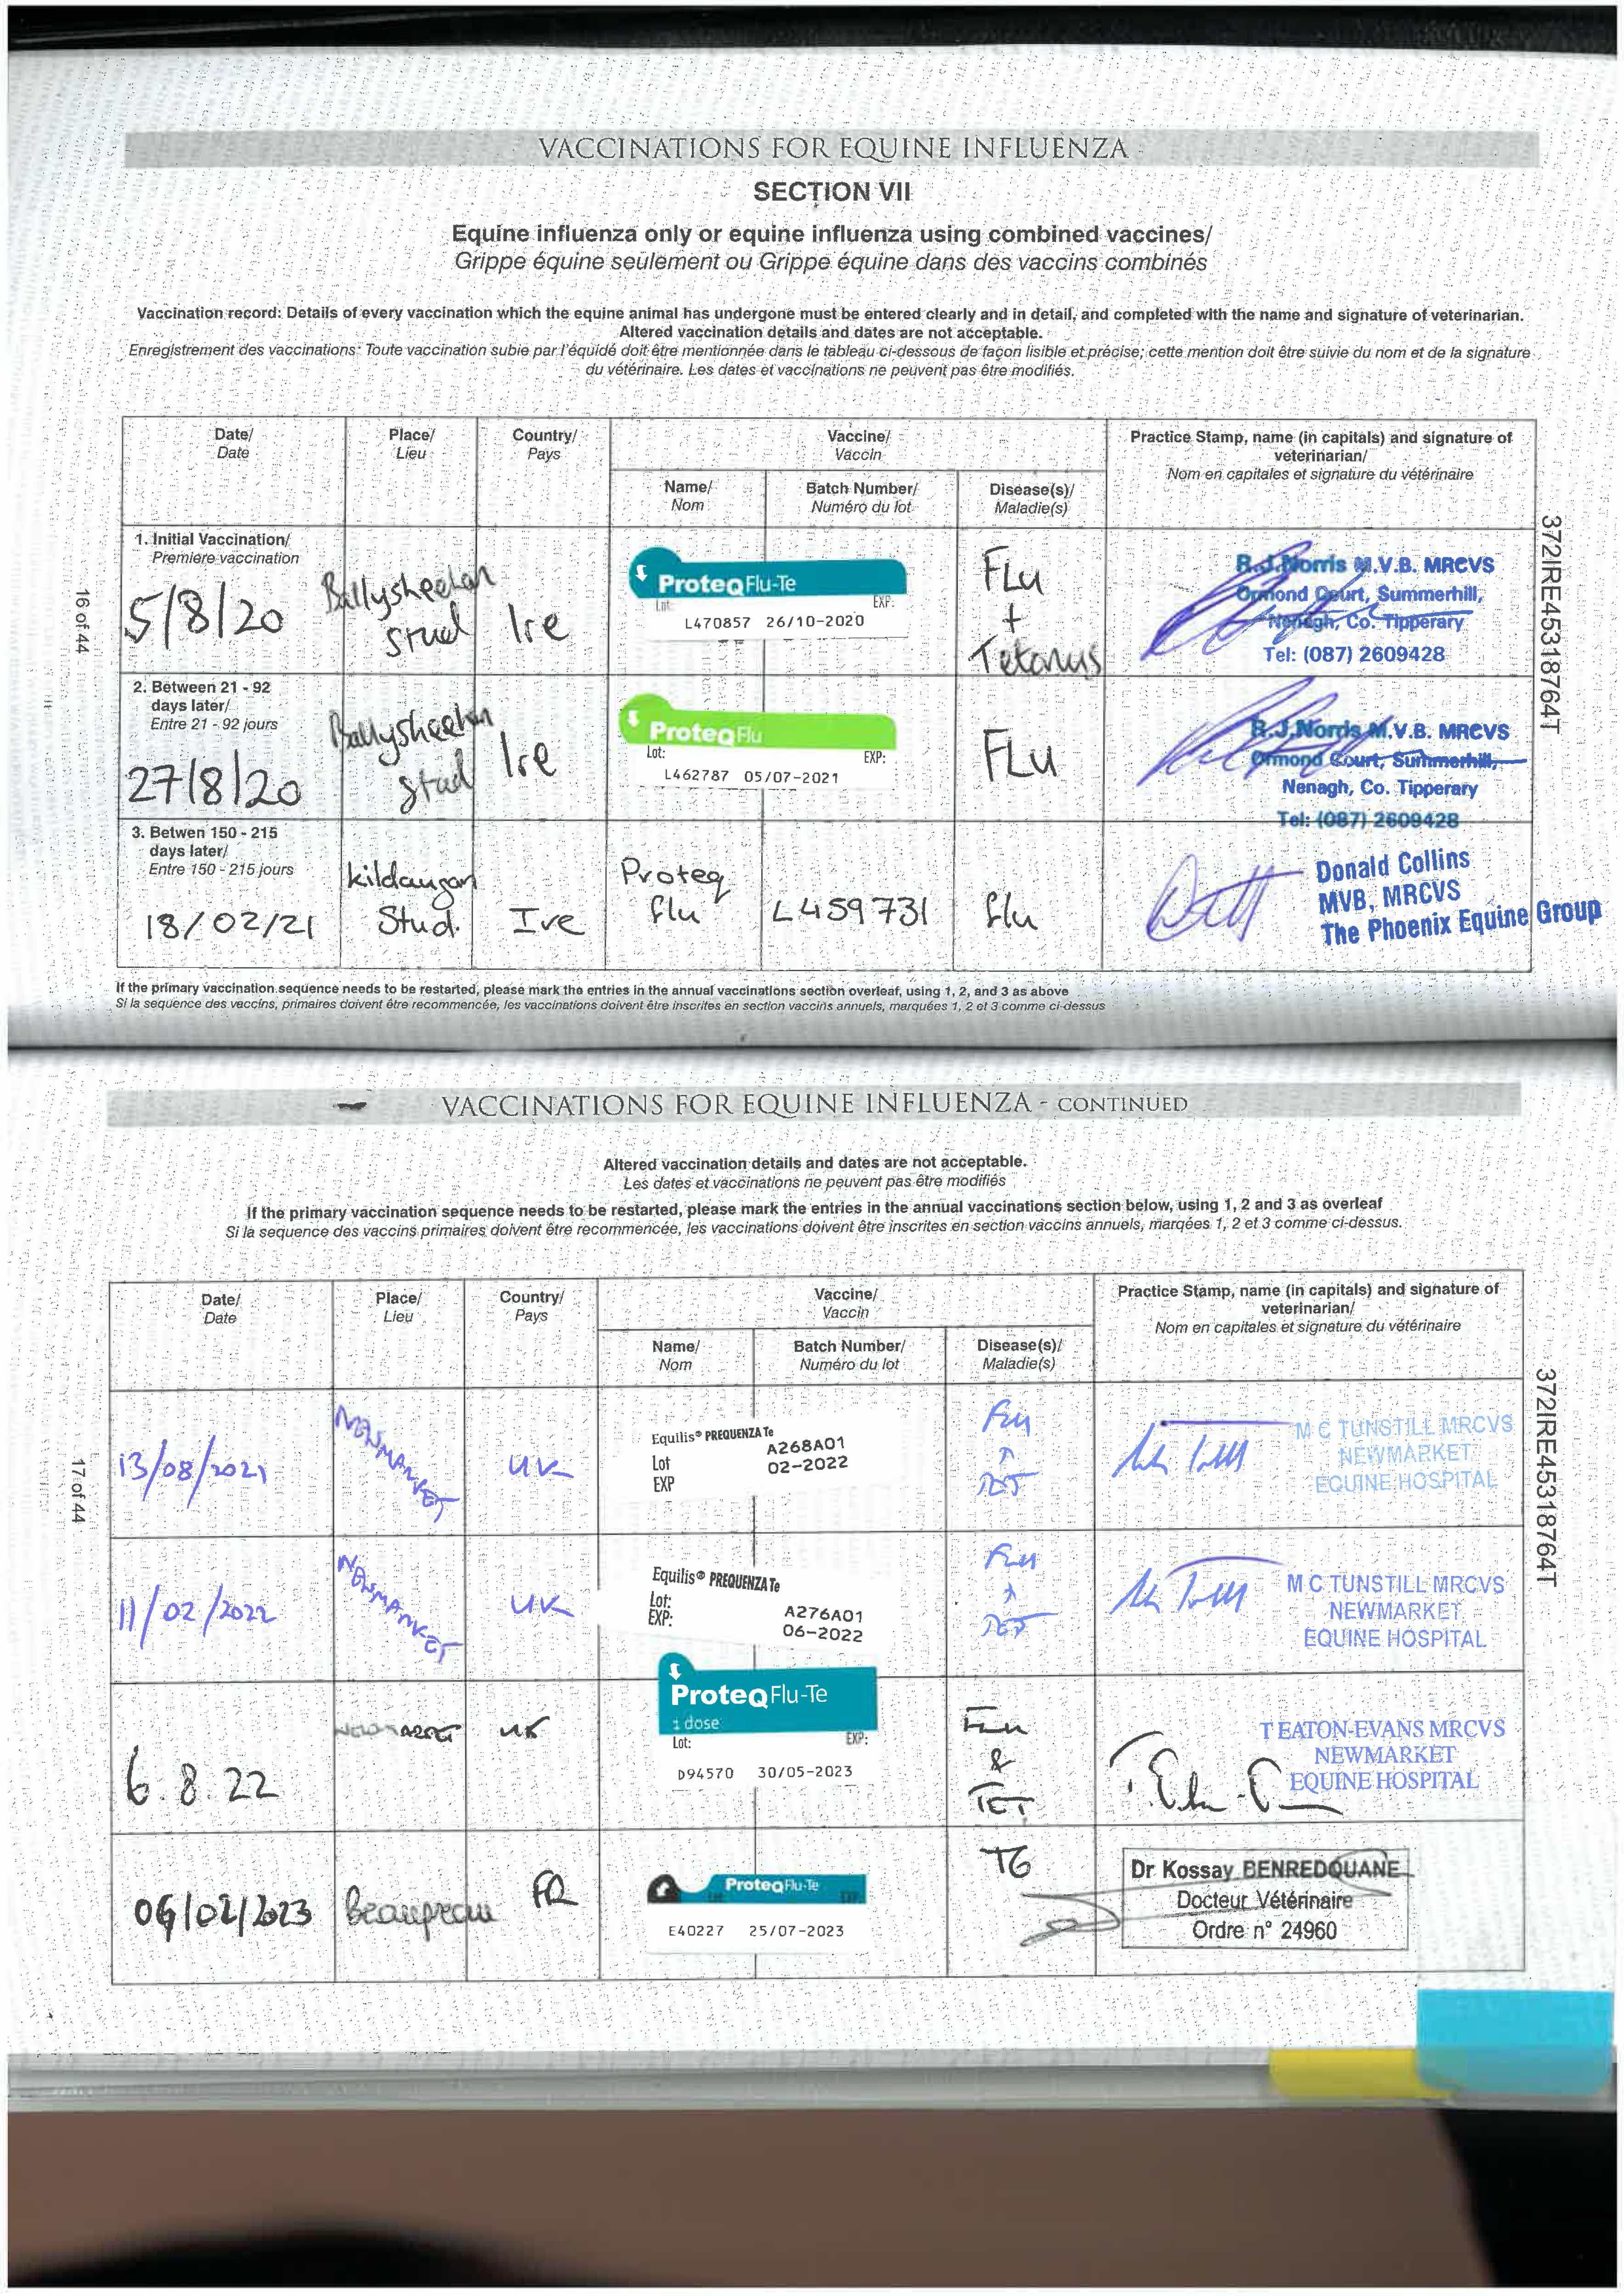 VACCINATIONS FOR EQUINE INFLUENZA
SECTION VII
Equine influenza only or equine influenza using combined vaccines/
Grippe équine seulement ou Grippe équine dans des vaccins combinés
Vaccination record: Details of every vaccination which the equine animal has undergone must be entered clearly and in detail, and completed with the name and signature of veterinarian.
Altered vaccination details and dates are not acceptable.
Enregistrement des vaccinations: Toute vaccination subie par l'équidé doit être mentionnée dans le tableau ci-dessous de façon lisible et précise; cette mention doit être suivie du nom et de la signature
du vétérinaire. Les dates et vaccinations ne peuvent pas être modifiés.
Date/
Date
Place/
Lieu
Country/
Pays
Vaccine/
Vaccin
Practice Stamp, name (in capitals) and signature of
veterinarian/
Nom en capitales et signature du vétérinaire
Name/
Nom
Batch Number/
Numéro du lot
Disease(s)/
Maladie(s)
1. Initial Vaccination/
Premiere vaccination
5/8/20
Ballysheehan
Stud
Ire
ProteqFlu-Te
Lot: EXP:
L470857 26/10-2020
FLu
+
Tetanus
R.J.Norris M.V.B. MRCVS
Ormond Court, Summerhill,
Nenagh, Co. Tipperary
Tel: (087) 2609428
2. Between 21 - 92
days later/
Entre 21 - 92 jours
27/8/20
Ballysheehan
Stud
Ire
ProteqFlu
Lot: EXP:
L462787 05/07-2021
FLu
R.J.Norris M.V.B. MRCVS
Ormond Court, Summerhill,
Nenagh, Co. Tipperary
Tel: (087) 2609428
3. Betwen 150 - 215
days later/
Entre 150 - 215 jours
18/02/21
Kildangan
Stud.
Ire
Proteq
flu
L459731
flu
Donald Collins
MVB, MRCVS
The Phoenix Equine Group
If the primary vaccination sequence needs to be restarted, please mark the entries in the annual vaccinations section overleaf, using 1, 2, and 3 as above
Si la sequence des vaccins, primaires doivent être recommencée, les vaccinations doivent être inscrites en section vaccins annuels, marquées 1, 2 et 3 comme ci-dessus
16 of 44
372IRE45318764T
VACCINATIONS FOR EQUINE INFLUENZA - CONTINUED
Altered vaccination details and dates are not acceptable.
Les dates et vaccinations ne peuvent pas être modifiés
If the primary vaccination sequence needs to be restarted, please mark the entries in the annual vaccinations section below, using 1, 2 and 3 as overleaf
Si la sequence des vaccins primaires doivent être recommencée, les vaccinations doivent être inscrites en section vaccins annuels, marqées 1, 2 et 3 comme ci-dessus.
Date/
Date
Place/
Lieu
Country/
Pays
Vaccine/
Vaccin
Practice Stamp, name (in capitals) and signature of
veterinarian/
Nom en capitales et signature du vétérinaire
Name/
Nom
Batch Number/
Numéro du lot
Disease(s)/
Maladie(s)
13/08/2021
NEWMARKET
UK
Equilis® PREQUENZA Te
A268A01
Lot 02-2022
EXP
Flu
TET
M C TUNSTILL MRCVS
NEWMARKET
EQUINE HOSPITAL
11/02/2022
NEWMARKET
UK
Equilis® PREQUENZA Te
Lot: A276A01
EXP: 06-2022
Flu
TET
M C TUNSTILL MRCVS
NEWMARKET
EQUINE HOSPITAL
6.8.22
NEWMARKET
UK
ProteqFlu-Te
1 dose
Lot: EXP:
D94570 30/05-2023
Flu
&
TET
T EATON-EVANS MRCVS
NEWMARKET
EQUINE HOSPITAL
06/02/2023
Beaupreau
FR
ProteqFlu-Te
E40227 25/07-2023
TG
Dr Kossay BENREDOUANE
Docteur Vétérinaire
Ordre n° 24960
17 of 44
372IRE45318764T